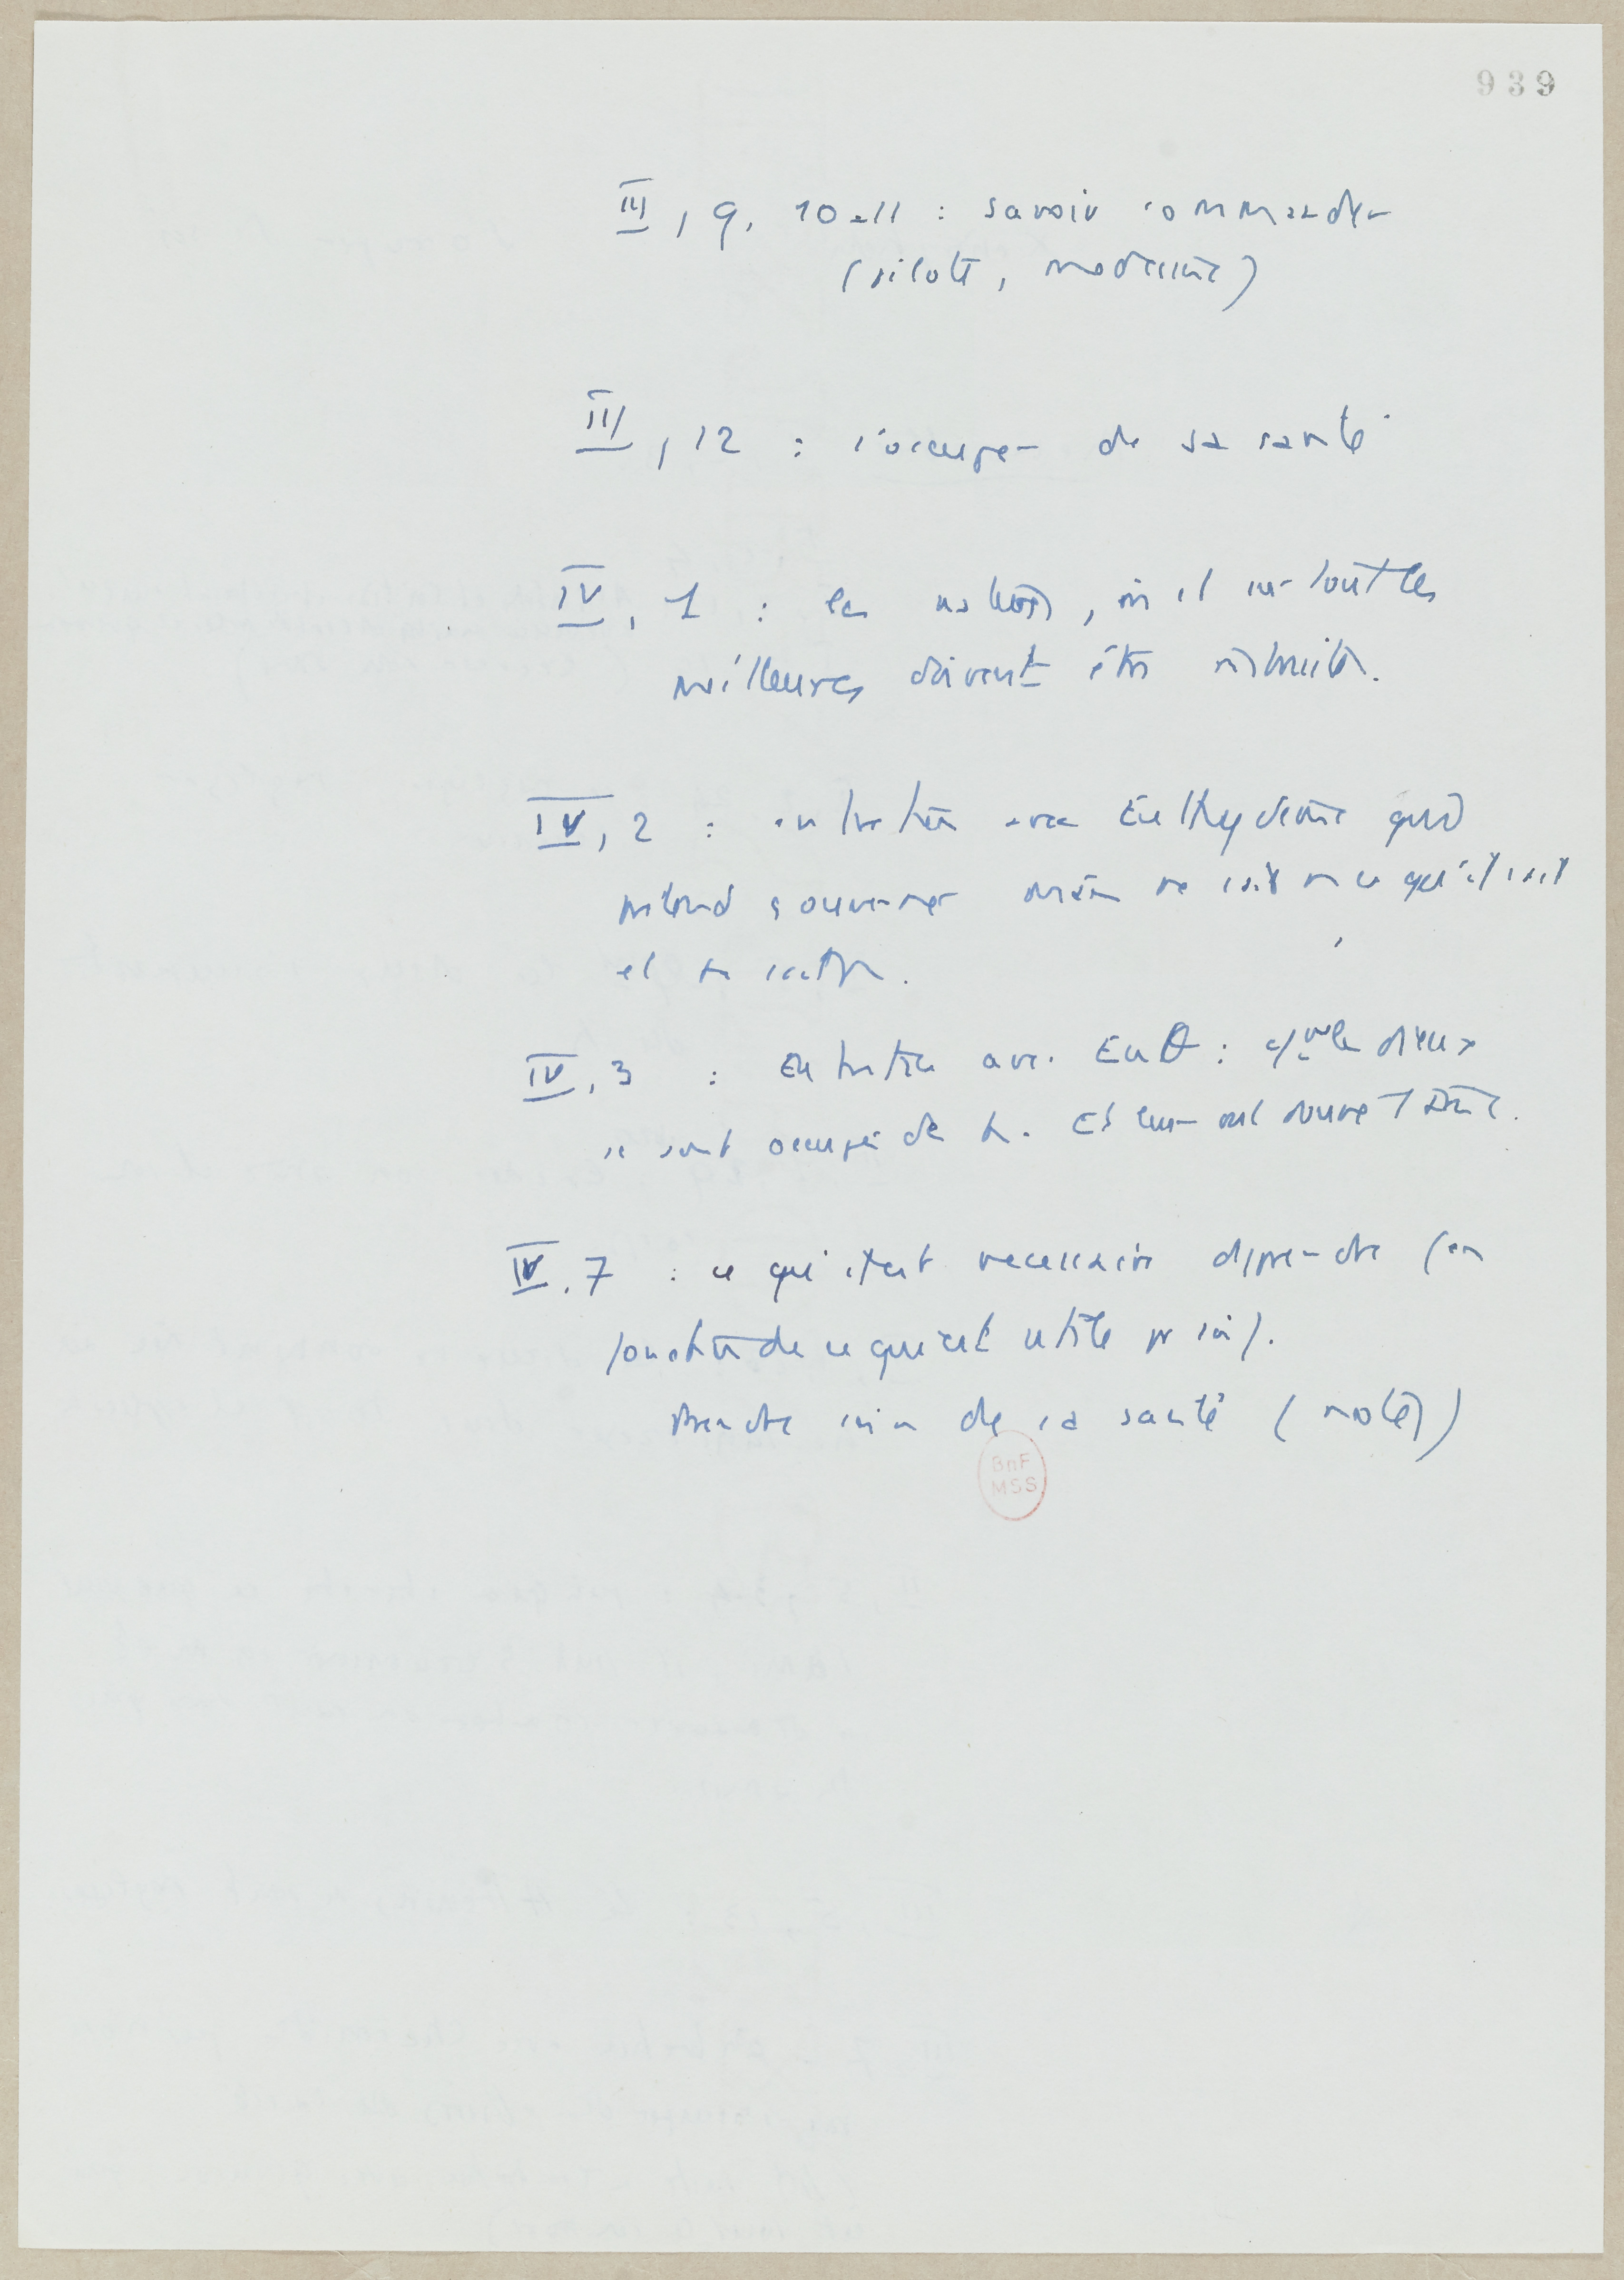 939
III, 9, 10-11 : savoir commander
(pilote, médecine)
III, 12 : s'occuper de sa santé
IV, 1 : les natures, et surtout les
meilleures doivent être
IV, 2 : entretien avec Euthydème qui
prétend gouverner mais ne sait ce qu'il sait
et
IV, 3 : Entretien avec Euθ : les dieux
se sont occupé de h. Et leur ont donné
IV, 7 : ce qui est nécessaire d'apprendre (en
fonction de ce qui est utile pr soi).
Prendre soin de sa santé (noter)
BnF
MSS